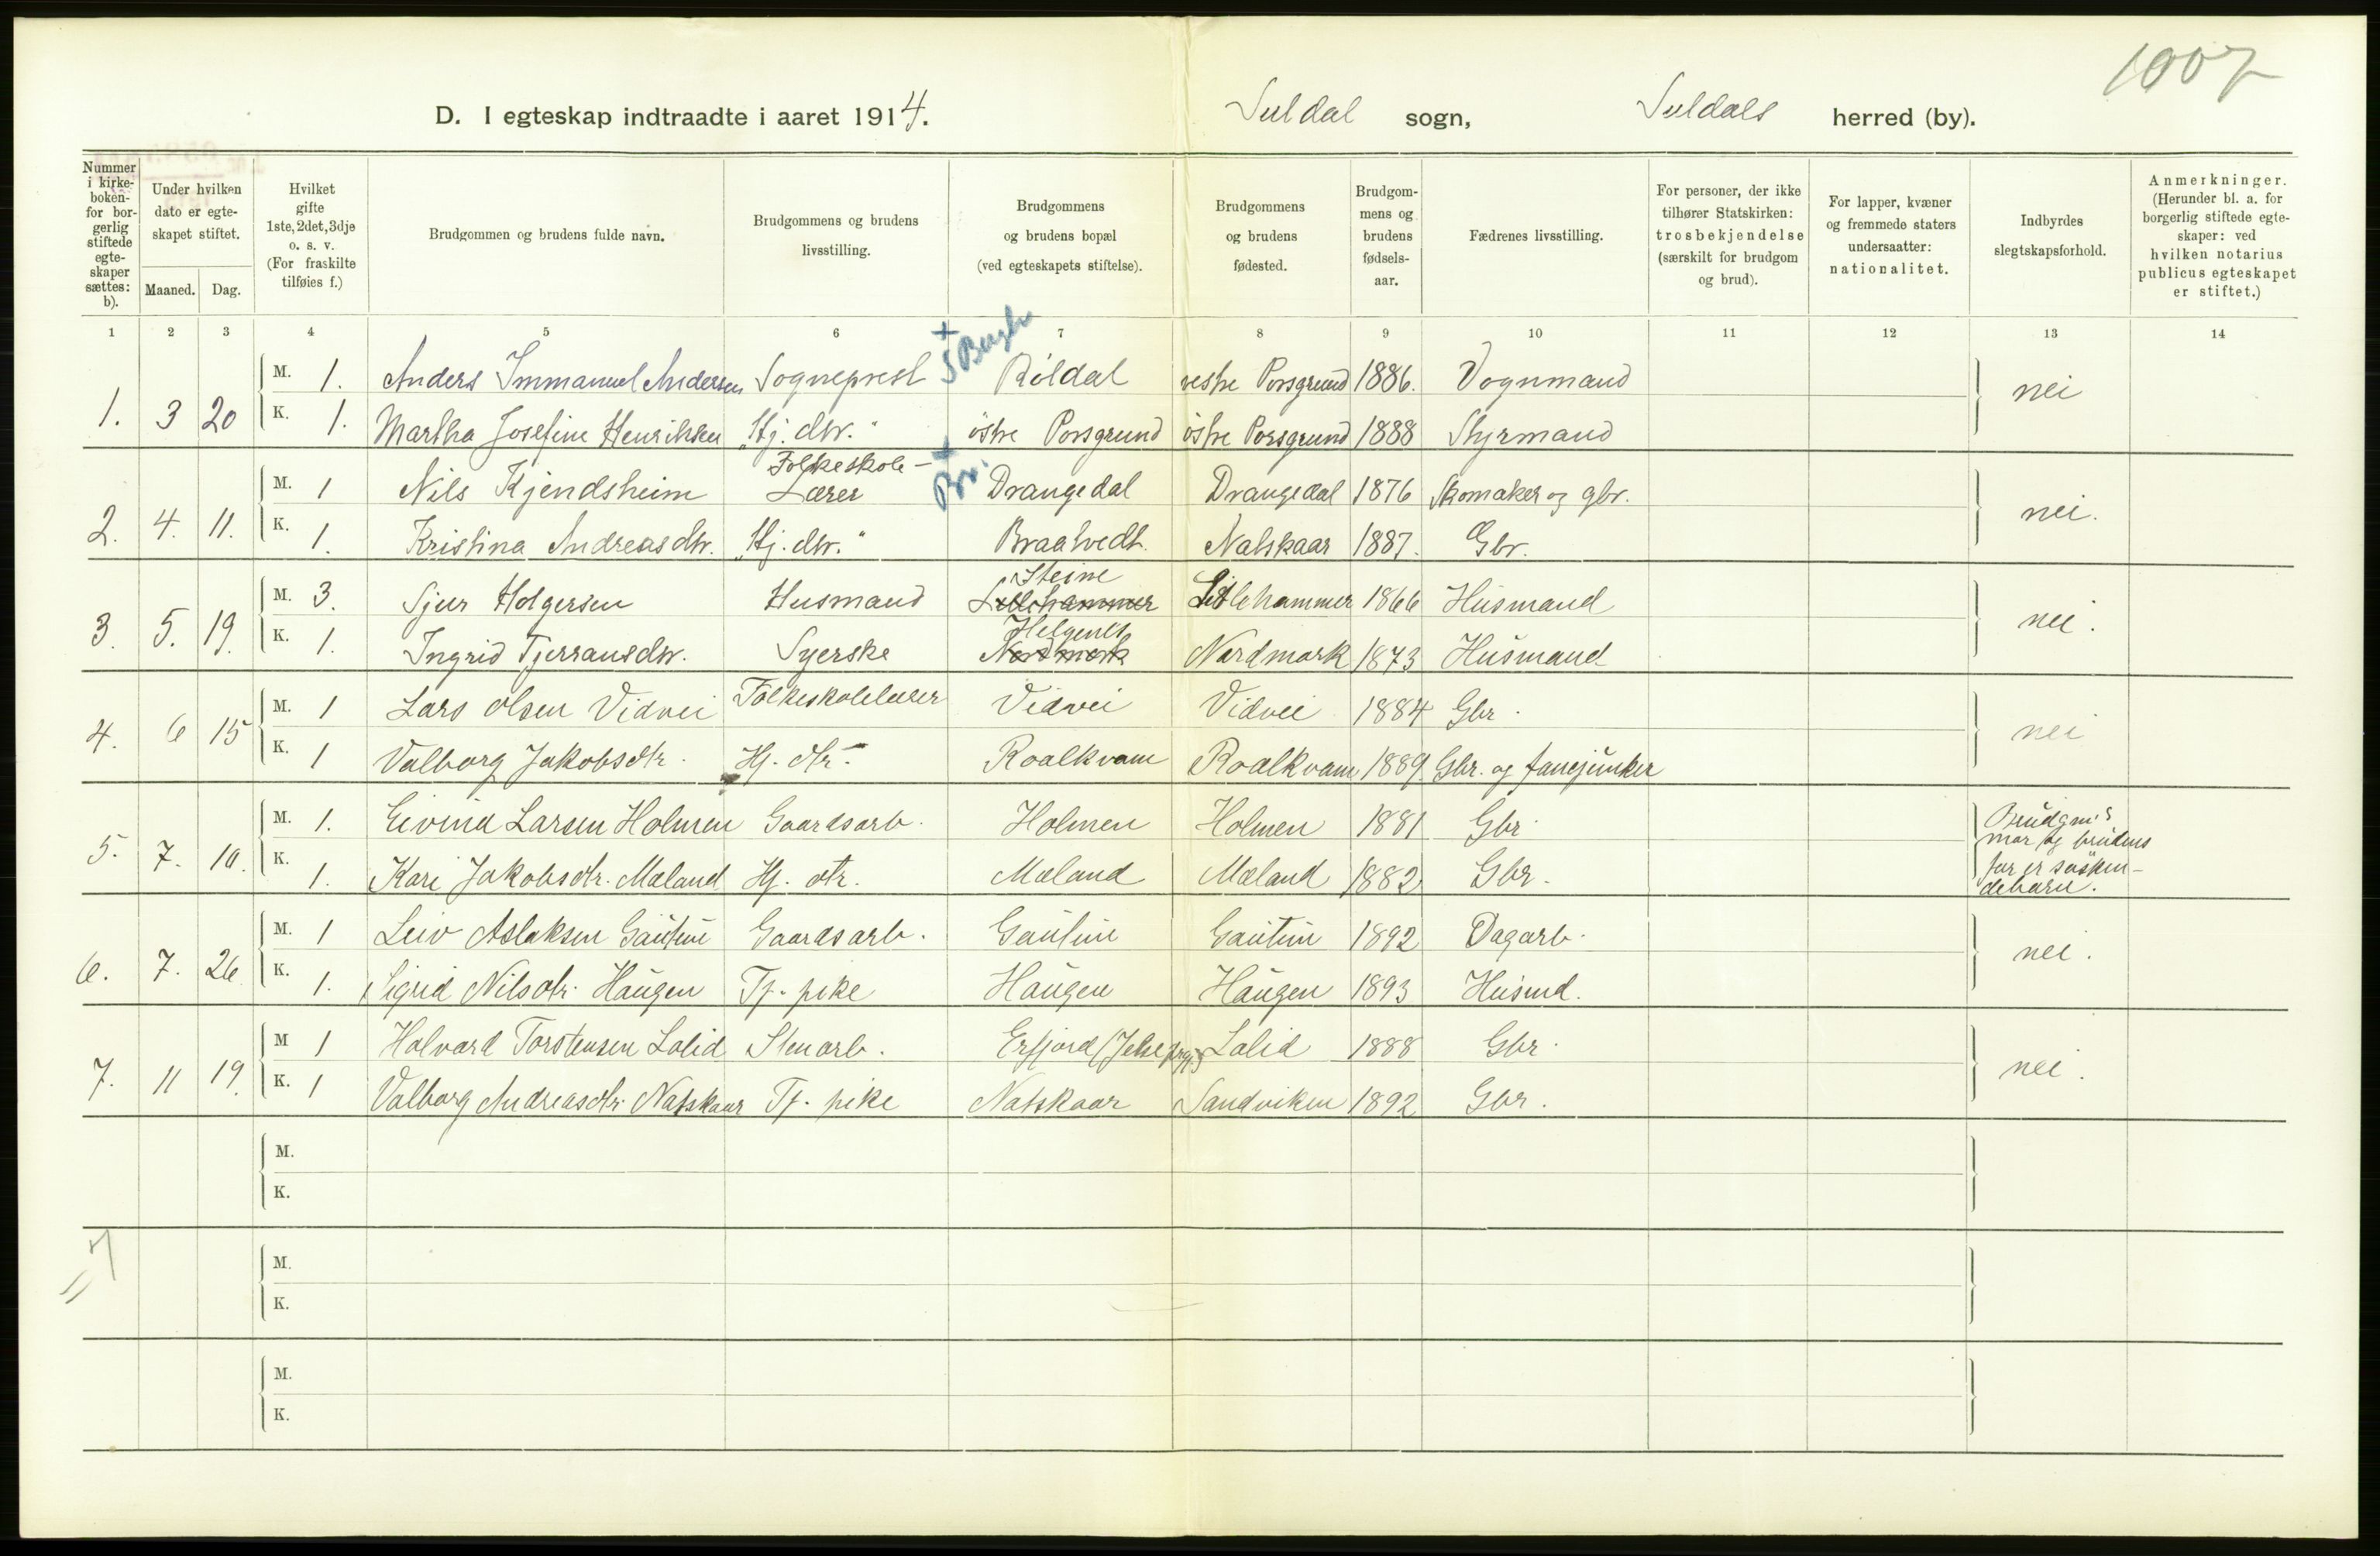 1007
D. I egteskap indtraadte i aaret 1914. Suldal sogn, Suldals herred (by).
Nummer i kirkeboken for borgerlig stiftede egteskaper sættes: b).
Under hvilken dato er egteskapet stiftet.
Maaned. Dag.
Hvilket gifte 1ste, 2det, 3dje o. s. v. (For fraskilte tilføies f.)
Brudgommen og brudens fulde navn.
Brudgommens og brudens livsstilling.
Brudgommens og brudens bopæl (ved egteskapets stiftelse).
Brudgommens og brudens fødested.
Brudgommens og brudens fødselsaar.
Fædrenes livsstilling.
For personer, der ikke tilhører Statskirken: trosbekjendelse (særskilt for brudgom og brud).
For lapper, kvæner og fremmede staters undersaatter: nationalitet.
Indbyrdes slegtskapsforhold.
Anmerkninger. (Herunder bl. a. for borgerlig stiftede egteskaper: ved hvilken notarius publicus egteskapet er stiftet.)
1 2 3 4 5 6 7 8 9 10 11 12 13 14
1. 3 20 M. 1. Anders Immanuel Andersen Sogneprest Røldal vestre Porsgrund 1886. Vognmand nei
K. 1. Martha Josefine Henriksen "Hj. dtr." östre Porsgrund östre Porsgrund 1888 Styrmand
2. 4. 11. M. 1 Nils Kjendsheim Folkeskole-Lærer Drangedal Drangedal 1876 Skomaker og gbr. nei.
K. 1. Kristina Andreasdtr. "Hj. dtr." Braatvedt Natskaar 1887. Gbr.
3. 5. 19. M. 3. Sjur Holgersen Husmand Steine Litlehammer Litlehammer 1866 Husmand nei.
K. 1. Ingrid Tjerransdtr. Syerske Nordmork Nordmork 1873 Husmand
4. 6 15 M. 1 Lars Olsen Vidvei Folkeskolelærer Vidvei Vidvei 1884 Gbr. nei
K. 1 Valborg Jakobsdtr. Hj. dtr. Roalkvam Roalkvam 1889 Gbr. og fanejunker
5. 7. 10. M. 1. Eivind Larsen Holmen Gaardsarb. Holmen Holmen 1881 Gbr. Brudgm's mor og brudens far er søskendebarn.
K. 1. Kari Jakobsdtr. Mæland Hj. dtr. Mæland Mæland 1882 Gbr.
6. 7. 26 M. 1 Leiv Aslaksen Gautun Gaardsarb. Gautun Gautun 1892 Dagarb. nei.
K. 1. Sigrid Nilsdtr. Haugen Tj. pike Haugen Haugen 1893 Husmd.
7. 11 19. M 1 Halvard Torstensen Lalid Stenarb. Erfjord (Jelse prgj.) Lalid 1888 Gbr. nei.
K. 1 Valborg Andreasdtr. Natskaar Tj. pike Natskaar Sandviken 1892 Gbr.
M.
K.
M.
K.
M.
K.
7